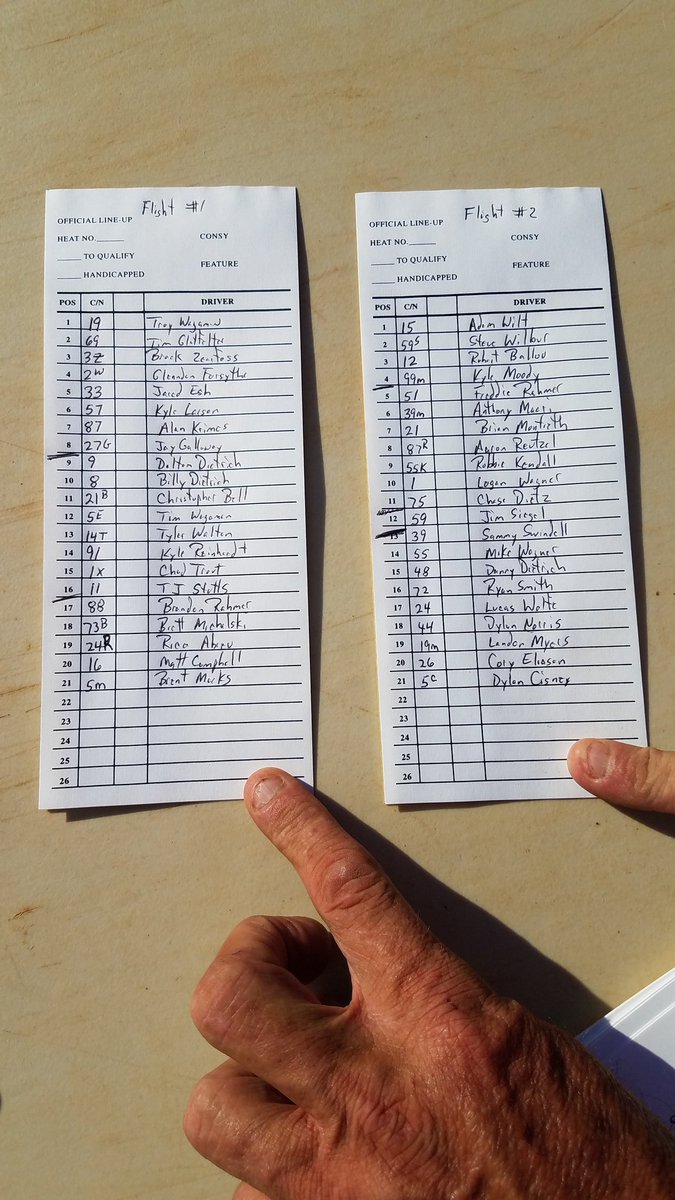 Flight #1
OFFICIAL LINE-UP
HEAT NO.______ CONSY
_____ TO QUALIFY
_____ HANDICAPPED FEATURE
POS C/N DRIVER
1 19 Troy Wagaman
2 69 Tim Glatfelter
3 3Z Brock Zearfoss
4 2W Glendon Forsythe
5 33 Jared Esh
6 57 Kyle Larson
7 87 Alan Krimes
8 27G Jay Galloway
9 9 Dalton Dietrich
10 8 Billy Dietrich
11 21B Christopher Bell
12 5E Tim Wagaman
13 14T Tyler Walton
14 91 Kyle Reinhardt
15 1X Chad Trout
16 11 TJ Stutts
17 88 Brandon Rahmer
18 73B Brett Michalski
19 24R Rico Abreu
20 16 Matt Campbell
21 5m Brent Marks
22
23
24
25
26
Flight #2
OFFICIAL LINE-UP
HEAT NO.______ CONSY
_____ TO QUALIFY
_____ HANDICAPPED FEATURE
POS C/N DRIVER
1 15 Adam Wilt
2 59S Steve Wilbur
3 12 Robert Ballou
4 99m Kyle Moody
5 51 Freddie Rahmer
6 39m Anthony Macri
7 21 Brian Montieth
8 87R Aaron Reutzel
9 55K Robbie Kendall
10 1 Logan Wagner
11 75 Chase Dietz
12 59 Jim Siegel
13 39 Sammy Swindell
14 55 Mike Wagner
15 48 Danny Dietrich
16 72 Ryan Smith
17 24 Lucas Wolfe
18 44 Dylan Norris
19 19m Landon Myers
20 26 Cory Eliason
21 5C Dylan Cisney
22
23
24
25
26